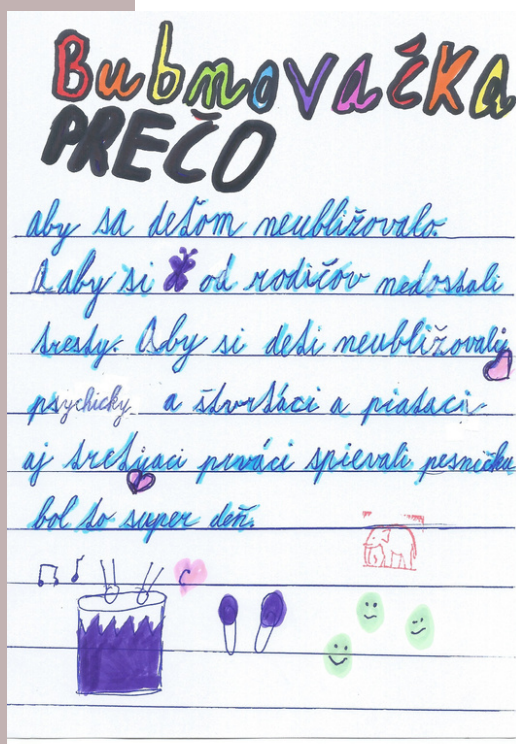 Bubnovačka
PREČO
aby sa deťom neubližovalo.
A aby si od rodičov nedostali
tresty. Aby si deti neubližovaly
psychicky a štvrtáci a piataci
aj tretyaci prváci spievali pesničku
bol to super deň.